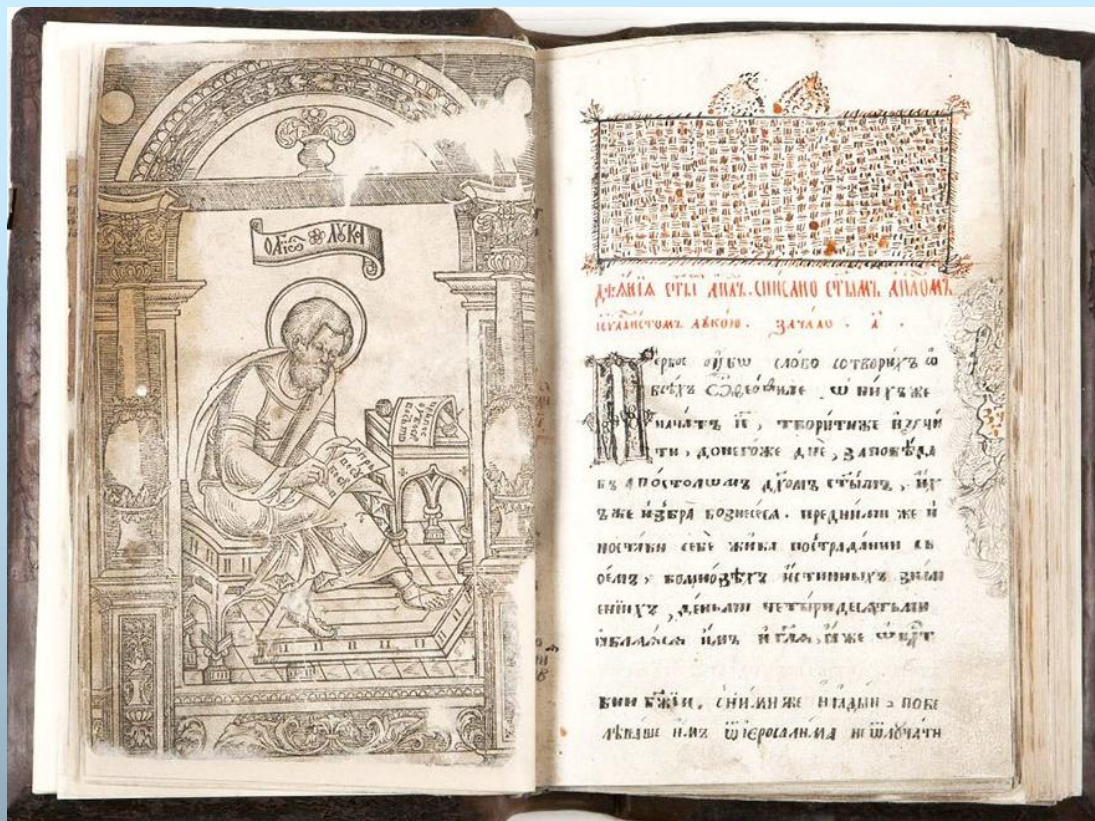 ОАГІОС ЛУКА
ДѢѦНІѦ СТЫ АПЛЪ. СПИСАНО СТЫМЪ АПЛОМЪ
ЕУАЛИСТОМЪ ЛУКОЮ. ЗАЧАЛО. А҃.
Первое ᲂубо слово сотворихъ ѡ
всѣхъ Ѽ Ѳеофиле ѡ нихъже
начатъ І҃с, творитиже и ᲂучи
ти, донегоже дн҃е, заповѣда
въ апостолωмъ д҃хомъ ст҃ымъ, их
ъже избра вознесесѧ. преднимиже и
постави себе жива пострадании св
оемъ, вомнозѣхъ истинныхъ знам
ениихъ, деньми четыридесѧтьми
ꙗвлѧѧсѧ имъ и гл҃ѧ, ꙗже ѡ црт
вии б҃жии. снимиже и ꙗдыи, пове
лѣваше имъ ѿ иеросалима не ѿлучати